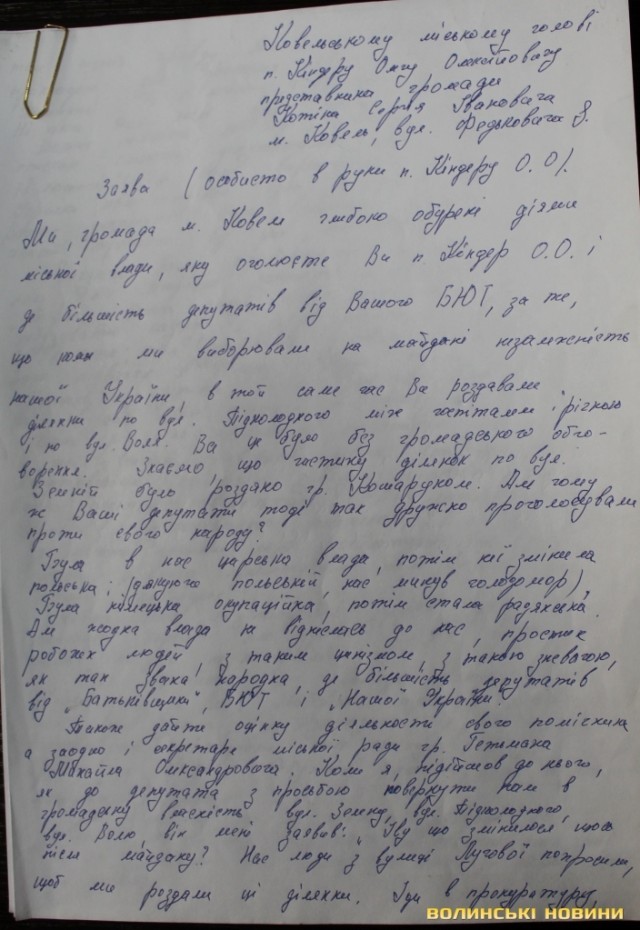 Ковельському міському голові
п. Кіндеру Олегу Олексійовичу
представника громади
Сергія Івановича
м. Ковель, вул. Федьковича 8.
Заява (особисто в руки п. Кіндеру О.О).
Ми, громада м. Ковеля глибоко обурені діями
міської влади, яку оголюєте Ви п Кіндер О.О. і
де більшість депутатів від Вашого БЮТ, за те,
що коли ми виборювали на майдані незалежність
нашої України, в той саме час Ви роздавали
ділянки по вул. між госпіталем і річкою
і по вул. Воля. Все це було без громадського обго-
ворення. Знаємо, що частину ділянок по вул.
Земній було роздано гр. Кошаруком. Але чому
ж Ваші депутати тоді так дружно проголосували
проти свого народу?
Була в нас царська влада, потім її змінила
польська; (дякуючи польській, нас минув голодомор),
Була німецька окупаційна, потім стала радянська.
Але жодна влада не віднеслась до нас, простих
робочих людей, з таким цинізмом, з такою зневагою,
як так звана народна, де більшість депутатів
від "Батьківщини", БЮТ і "Нашої України".
Також дайте оцінку діяльності свого помічника
а заодно і секретаря міської ради гр. Гетьмана
Михайла Олександровича. Коли я, підійшов до нього,
як до депутата з просьбою повернути нам в
громадську власність вул. Земну, вул.
вул. Волю він мені заявив: "Ну що змінилося
після майдану? Нас люди з вулиці Лугової попросили,
щоб ми роздали ці ділянки. Іди в прокуратуру,
ВОЛИНСЬКІ НОВИНИ